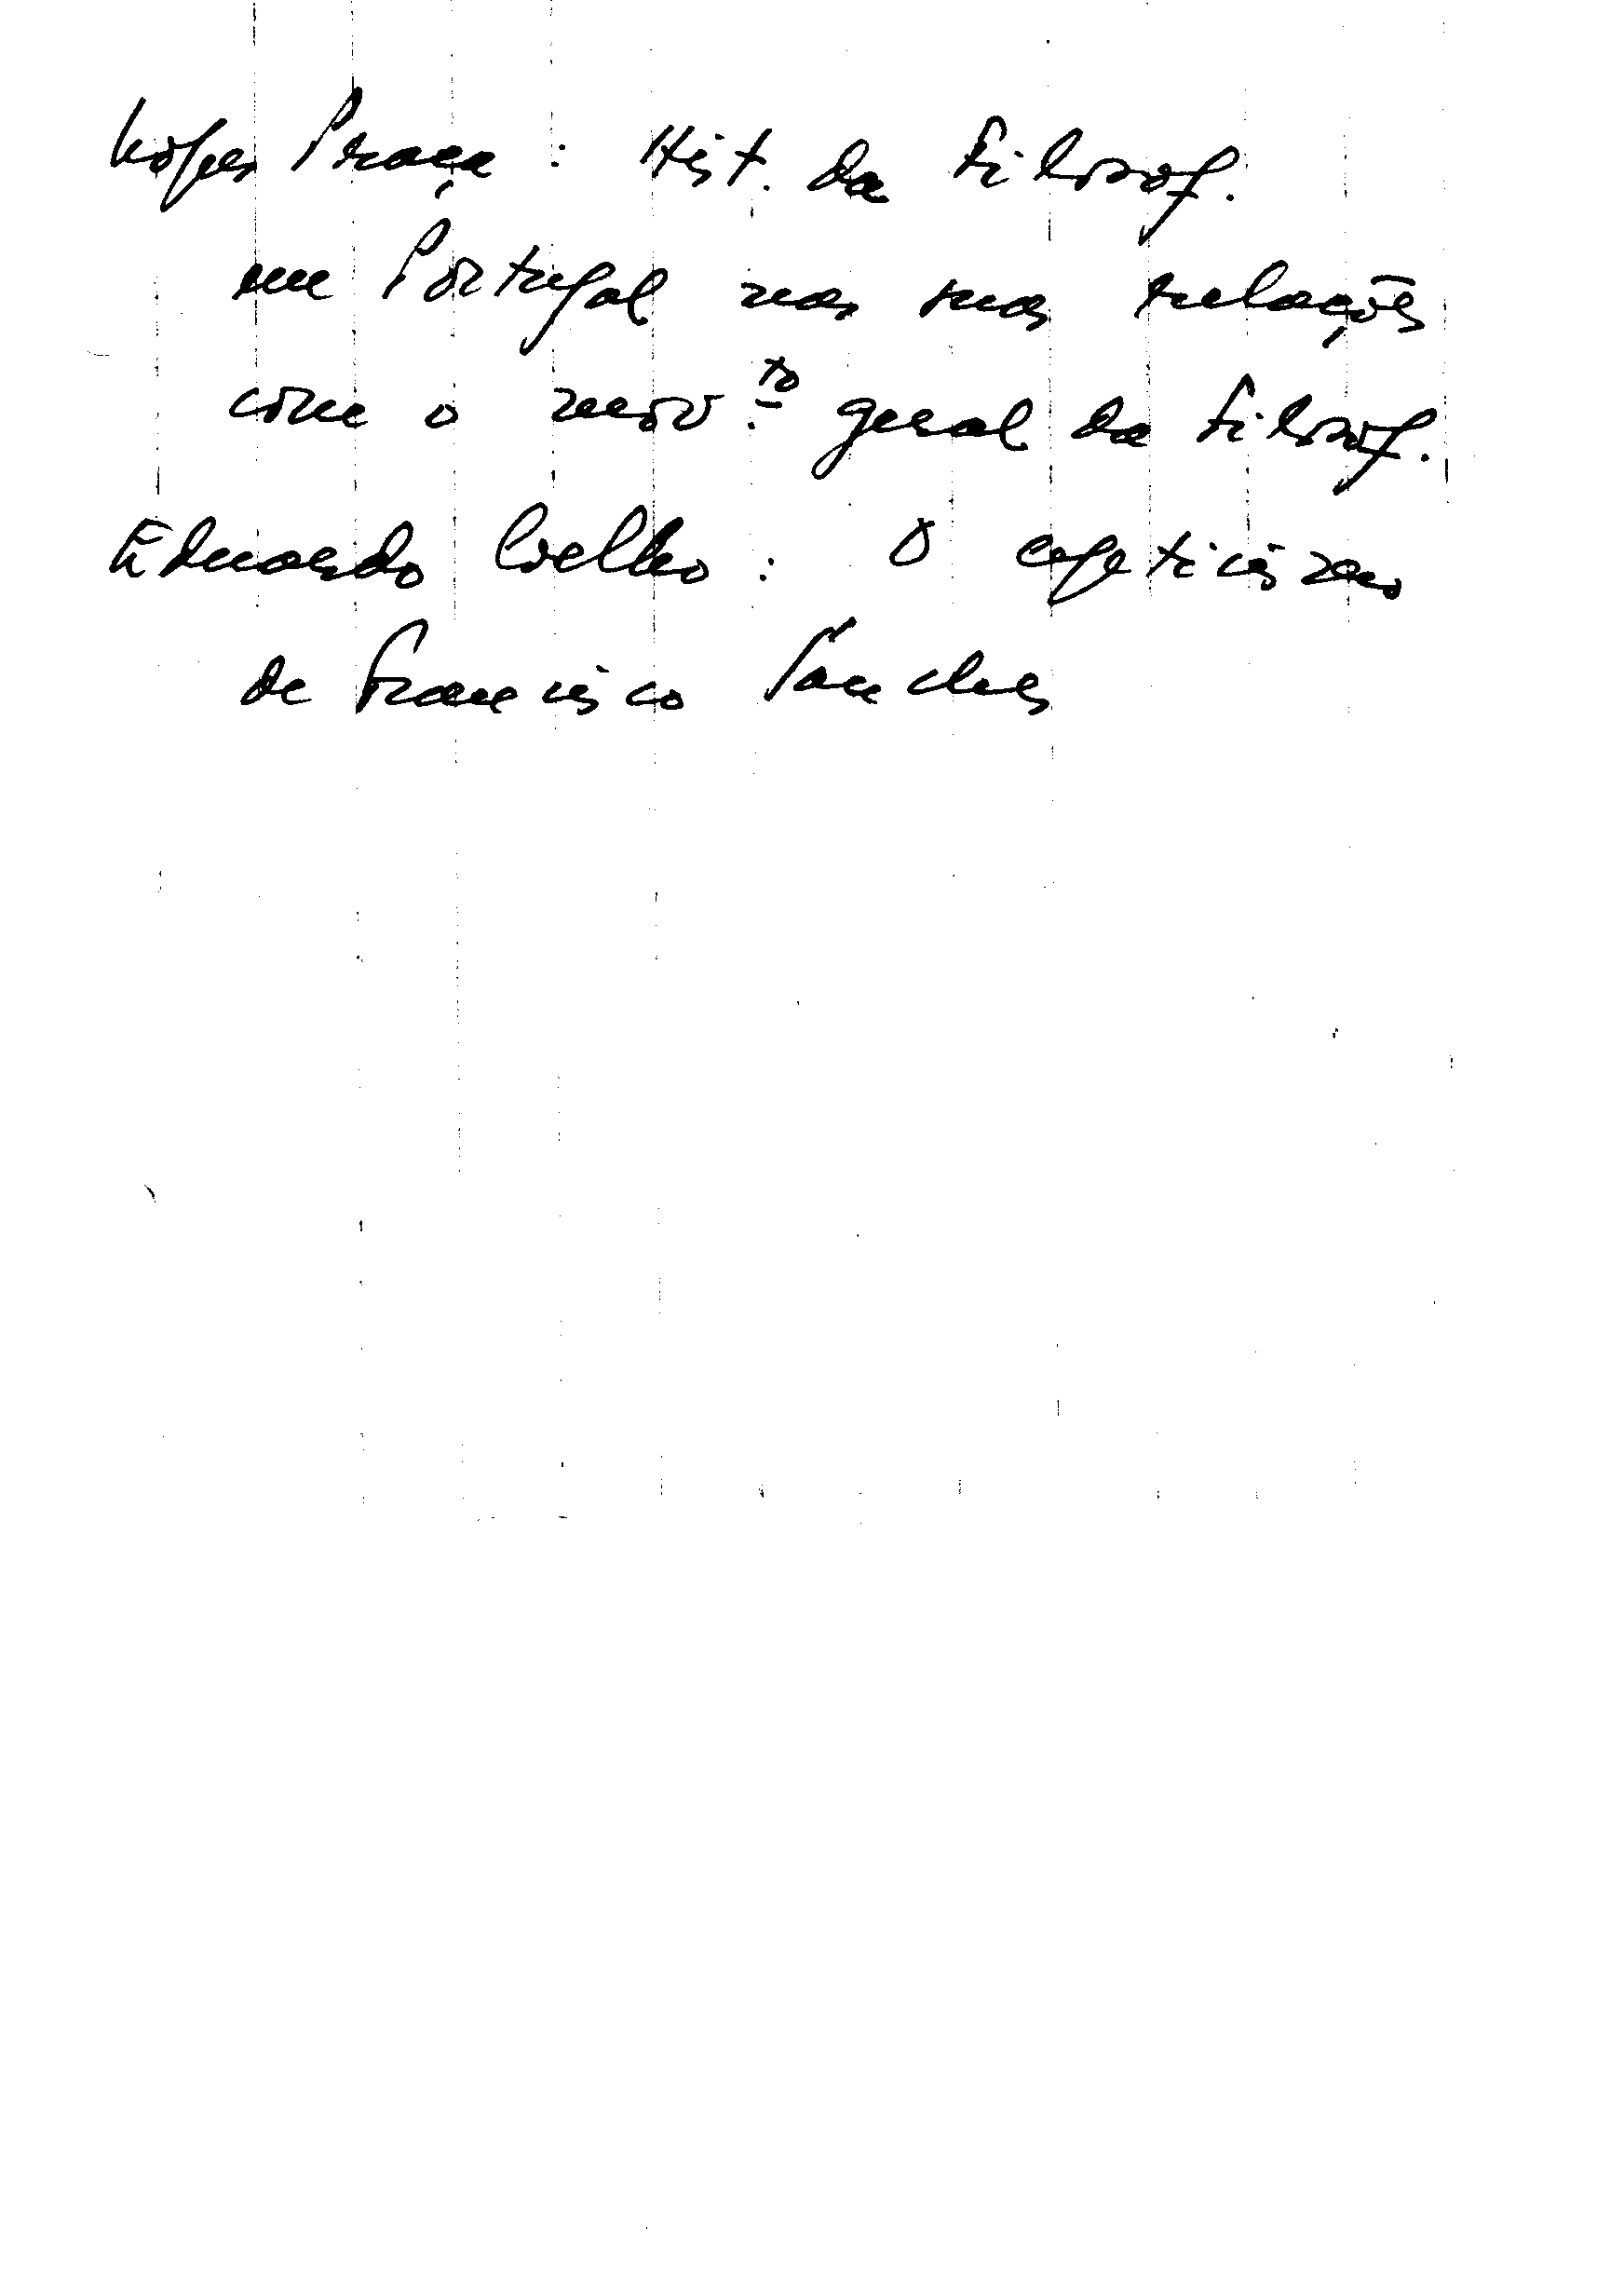 Lopes Praça : Hist. da Filosof.
em Portugal nas suas relações
com o mov.to geral da Filosof.
Eduardo Coelho : O cepticismo
de Francisco Sanches